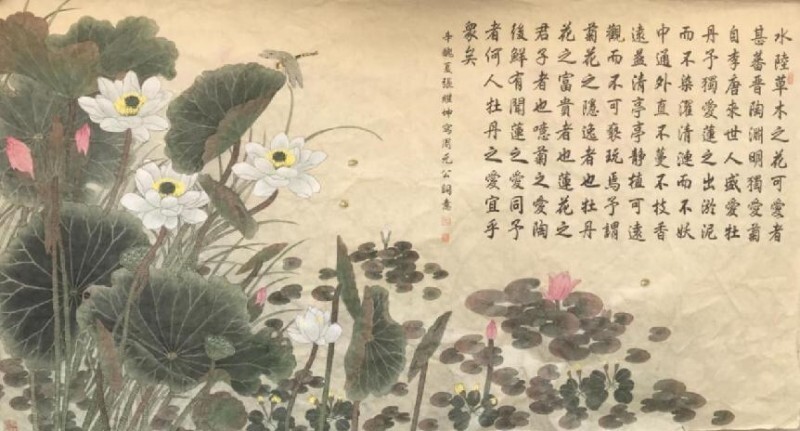 水陸草木之花可愛者
甚蕃晉陶淵明獨愛菊
自李唐来世人盛愛牡
丹予獨愛蓮之出淤泥
而不染濯清漣而不妖
中通外直不蔓不枝香
遠益清亭亭静植可遠
觀而不可褻玩焉予謂
菊花之隱逸者也牡丹
花之富貴者也蓮花之
君子者也噫菊之愛陶
後鮮有聞蓮之愛同予
者何人牡丹之愛宜乎
衆矣
夏張維坤寫周元公詞意